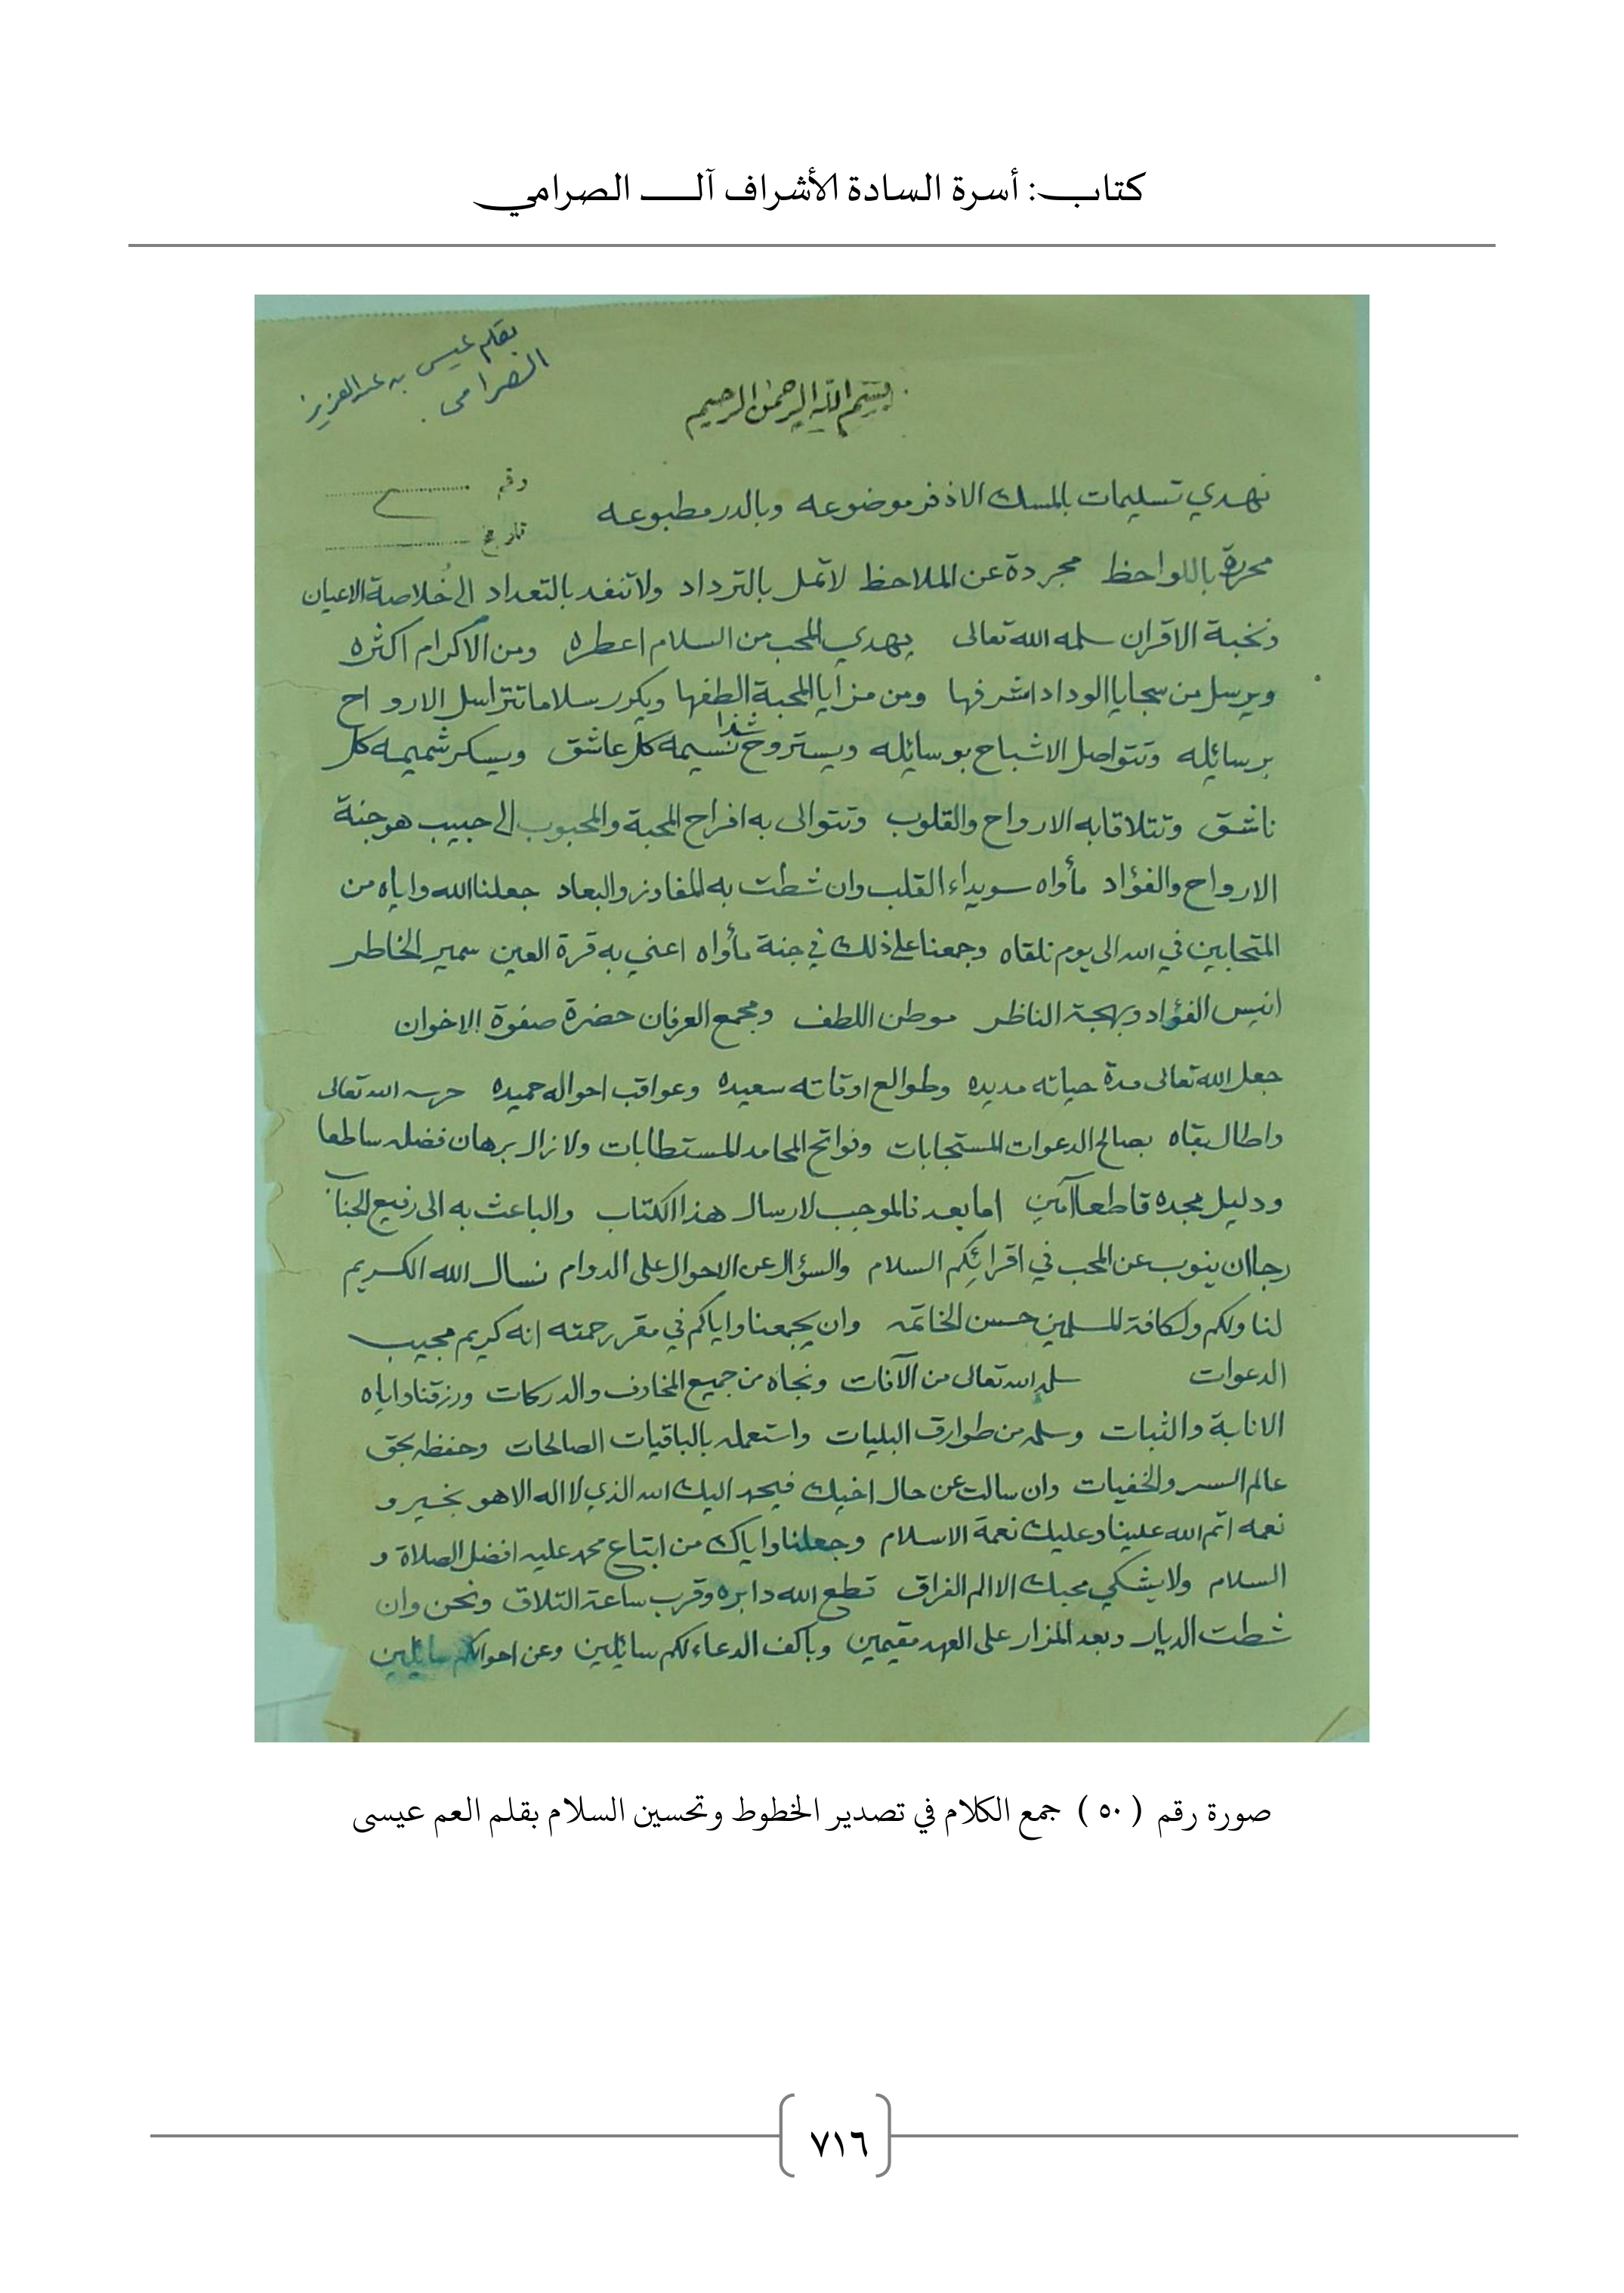 كتاب: أسرة السادة الأشراف آل الصرامي
بقلم عيسى بن عبدالعزيز
الصرامي
بسم الله الرحمن الرحيم
رقم
تاريخ
نهدي تسليمات بالمسك الاذفر موضوعه وبالدر مطبوعه
محررة باللواحظ مجردة عن الملاحظ لا تمل بالترداد ولا تنفد بالتعداد الى خُلاصة الاعيان
ونخبة الاقران سلمه الله تعالى يهدي المحب من السلام اعطره ومن الاكرام اكثره
ويرسل من سجايا الوداد اشرفها ومن مزايا المحبة الطفها ويكرر سلاما تتراسل الارواح
برسائله وتتواصل الاشباح بوسائله ويستروح شذا نسيمه كل عاشق ويسكر شميمه كل
ناشق وتتلاقا به الارواح والقلوب وتتوالى به افراح المحبة والمحبوب الى حبيب هو جنة
الارواح والفؤاد مأواه سويداء القلب وان شطت به المفاوز والبعاد جعلنا الله واياه من
المتحابين في الله الى يوم نلقاه وجمعنا على ذلك في جنة مأواه اعني به قرة العين سمير الخاطر
انيس الفؤاد وبهجة الناظر موطن اللطف ومجمع العرفان حضرة صفوة الاخوان
جعل الله تعالى مدة حياته مديده وطوالع اوقاته سعيده وعواقب احواله حميده حرسه الله تعالى
واطال بقاه بصالح الدعوات المستجابات وفواتح المحامد المستطابات ولا زال برهان فضله ساطعا
ودليل مجده قاطعا آمين اما بعد فالموجب لارسال هذا الكتاب والباعث به الى رفيع الجناب
رجا ان ينوب عن المحب في اقرائكم السلام والسؤال عن الاحوال على الدوام نسال الله الكريم
لنا ولكم ولكافة المسلمين حسن الخاتمه وان يجمعنا واياكم في مقر رحمته انه كريم مجيب
الدعوات سلمه الله تعالى من الآفات ونجاه من جميع المخاوف والدركات ورزقنا واياه
الانابة والثبات وسلمه من طوارق البليات واستعمله بالباقيات الصالحات وحفظه بحق
عالم السر والخفيات وان سالت عن حال اخيك فيحمد اليك الله الذي لا اله الا هو بخير و
نعمه اتم الله علينا وعليك نعمة الاسلام وجعلنا واياك من ابتاع محمد عليه افضل الصلاة و
السلام ولا يشكي محبك الا الم الفراق قطع الله دابره وقرب ساعة التلاق ونحن وان
شطت الديار وبعد المزار على العهد مقيمين وباكف الدعاء لكم سائلين وعن احوالكم سايلين
صورة رقم ( ٥٠ ) جمع الكلام في تصدير الخطوط وتحسين السلام بقلم العم عيسى
٧١٦